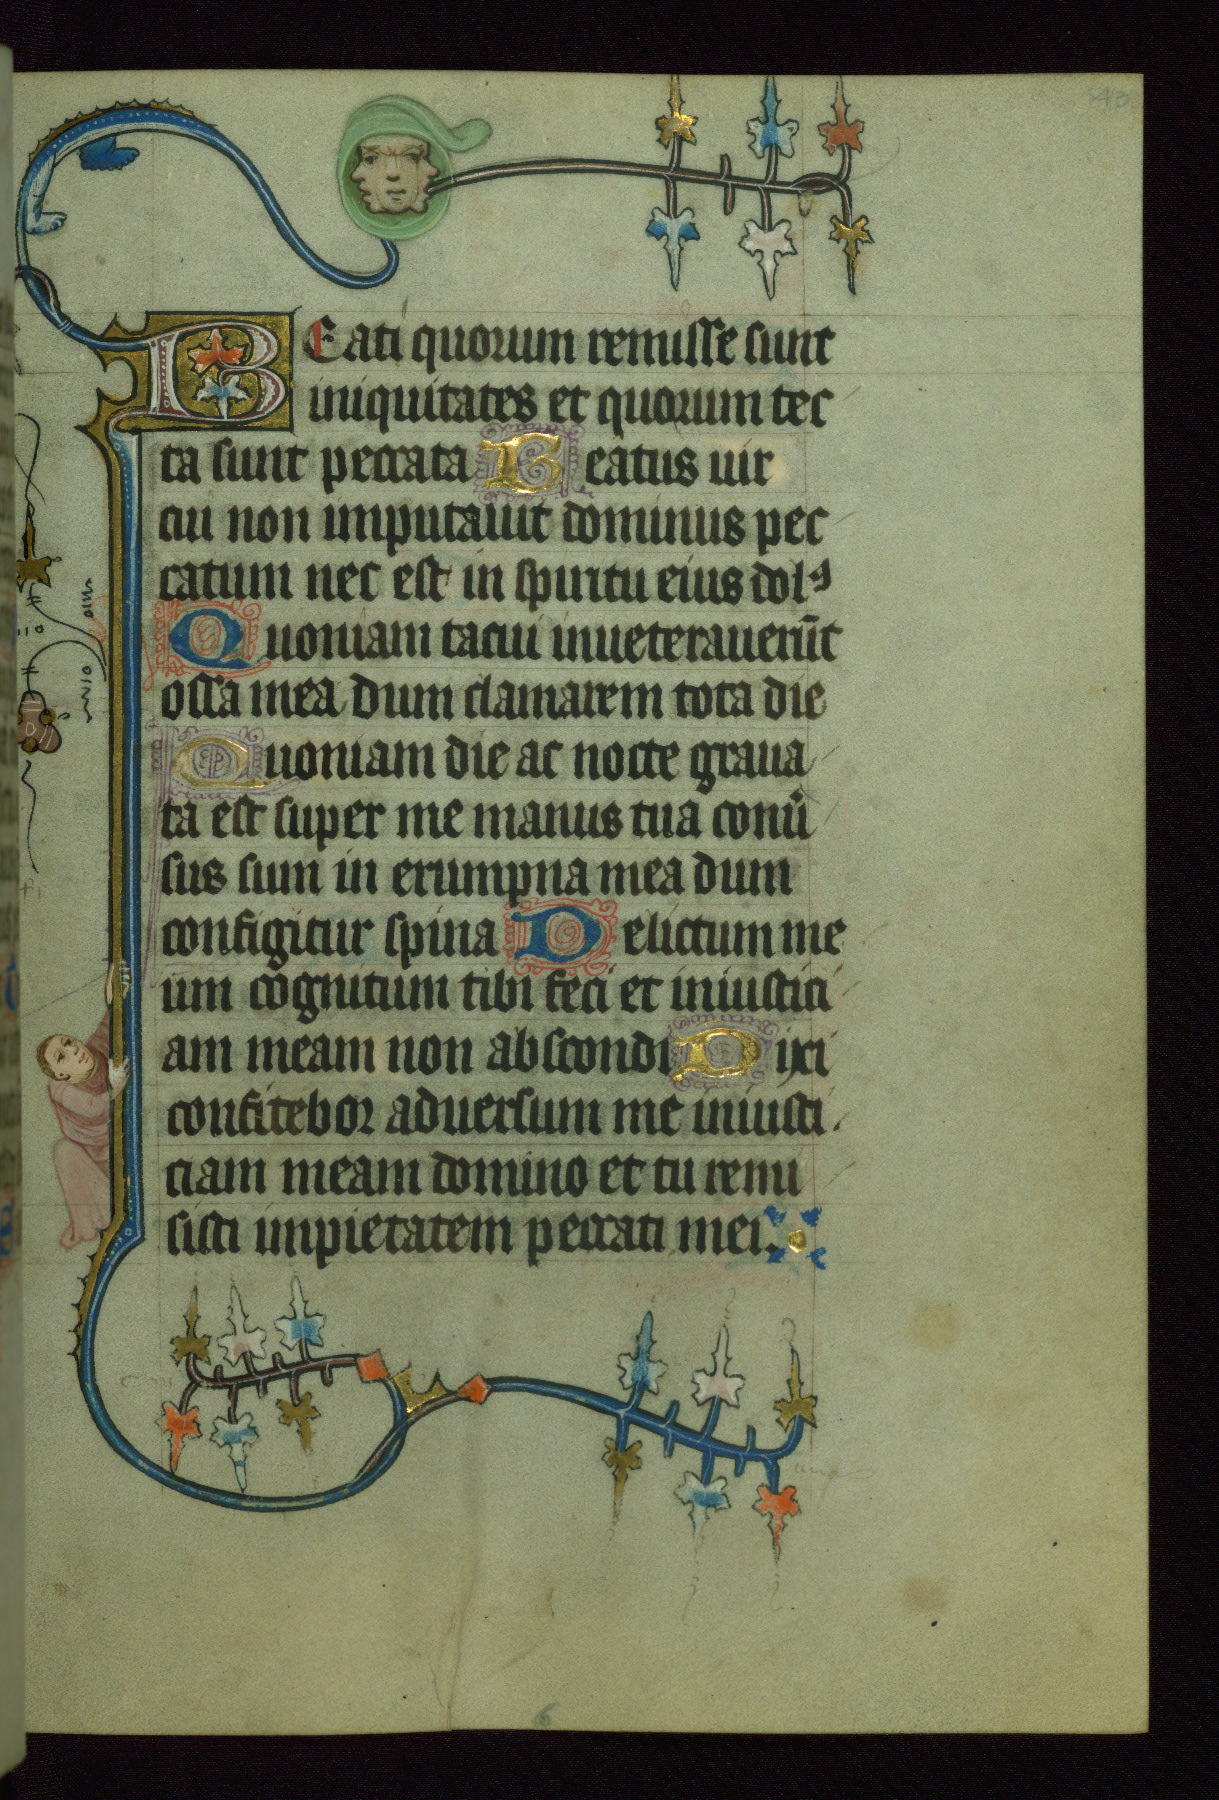 43
BEati quorum remisse sunt
iniquitates et quorum tec
ta sunt peccata Beatus uir
cui non imputauit dominus pec
catum nec est in spiritu eius dolꝰ
Quoniam tacui inueterauerūt
ossa mea dum clamarem tota die
Quoniam die ac nocte graua
ta est super me manus tua conũ
sus sum in erumpna mea dum
configitur spina Delictum me
um cognitum tibi feci et iniustici
am meam non abscondi Dixi
confitebor aduersum me iniusti
ciam meam domino et tu remi
sisti impietatem peccati mei.
6